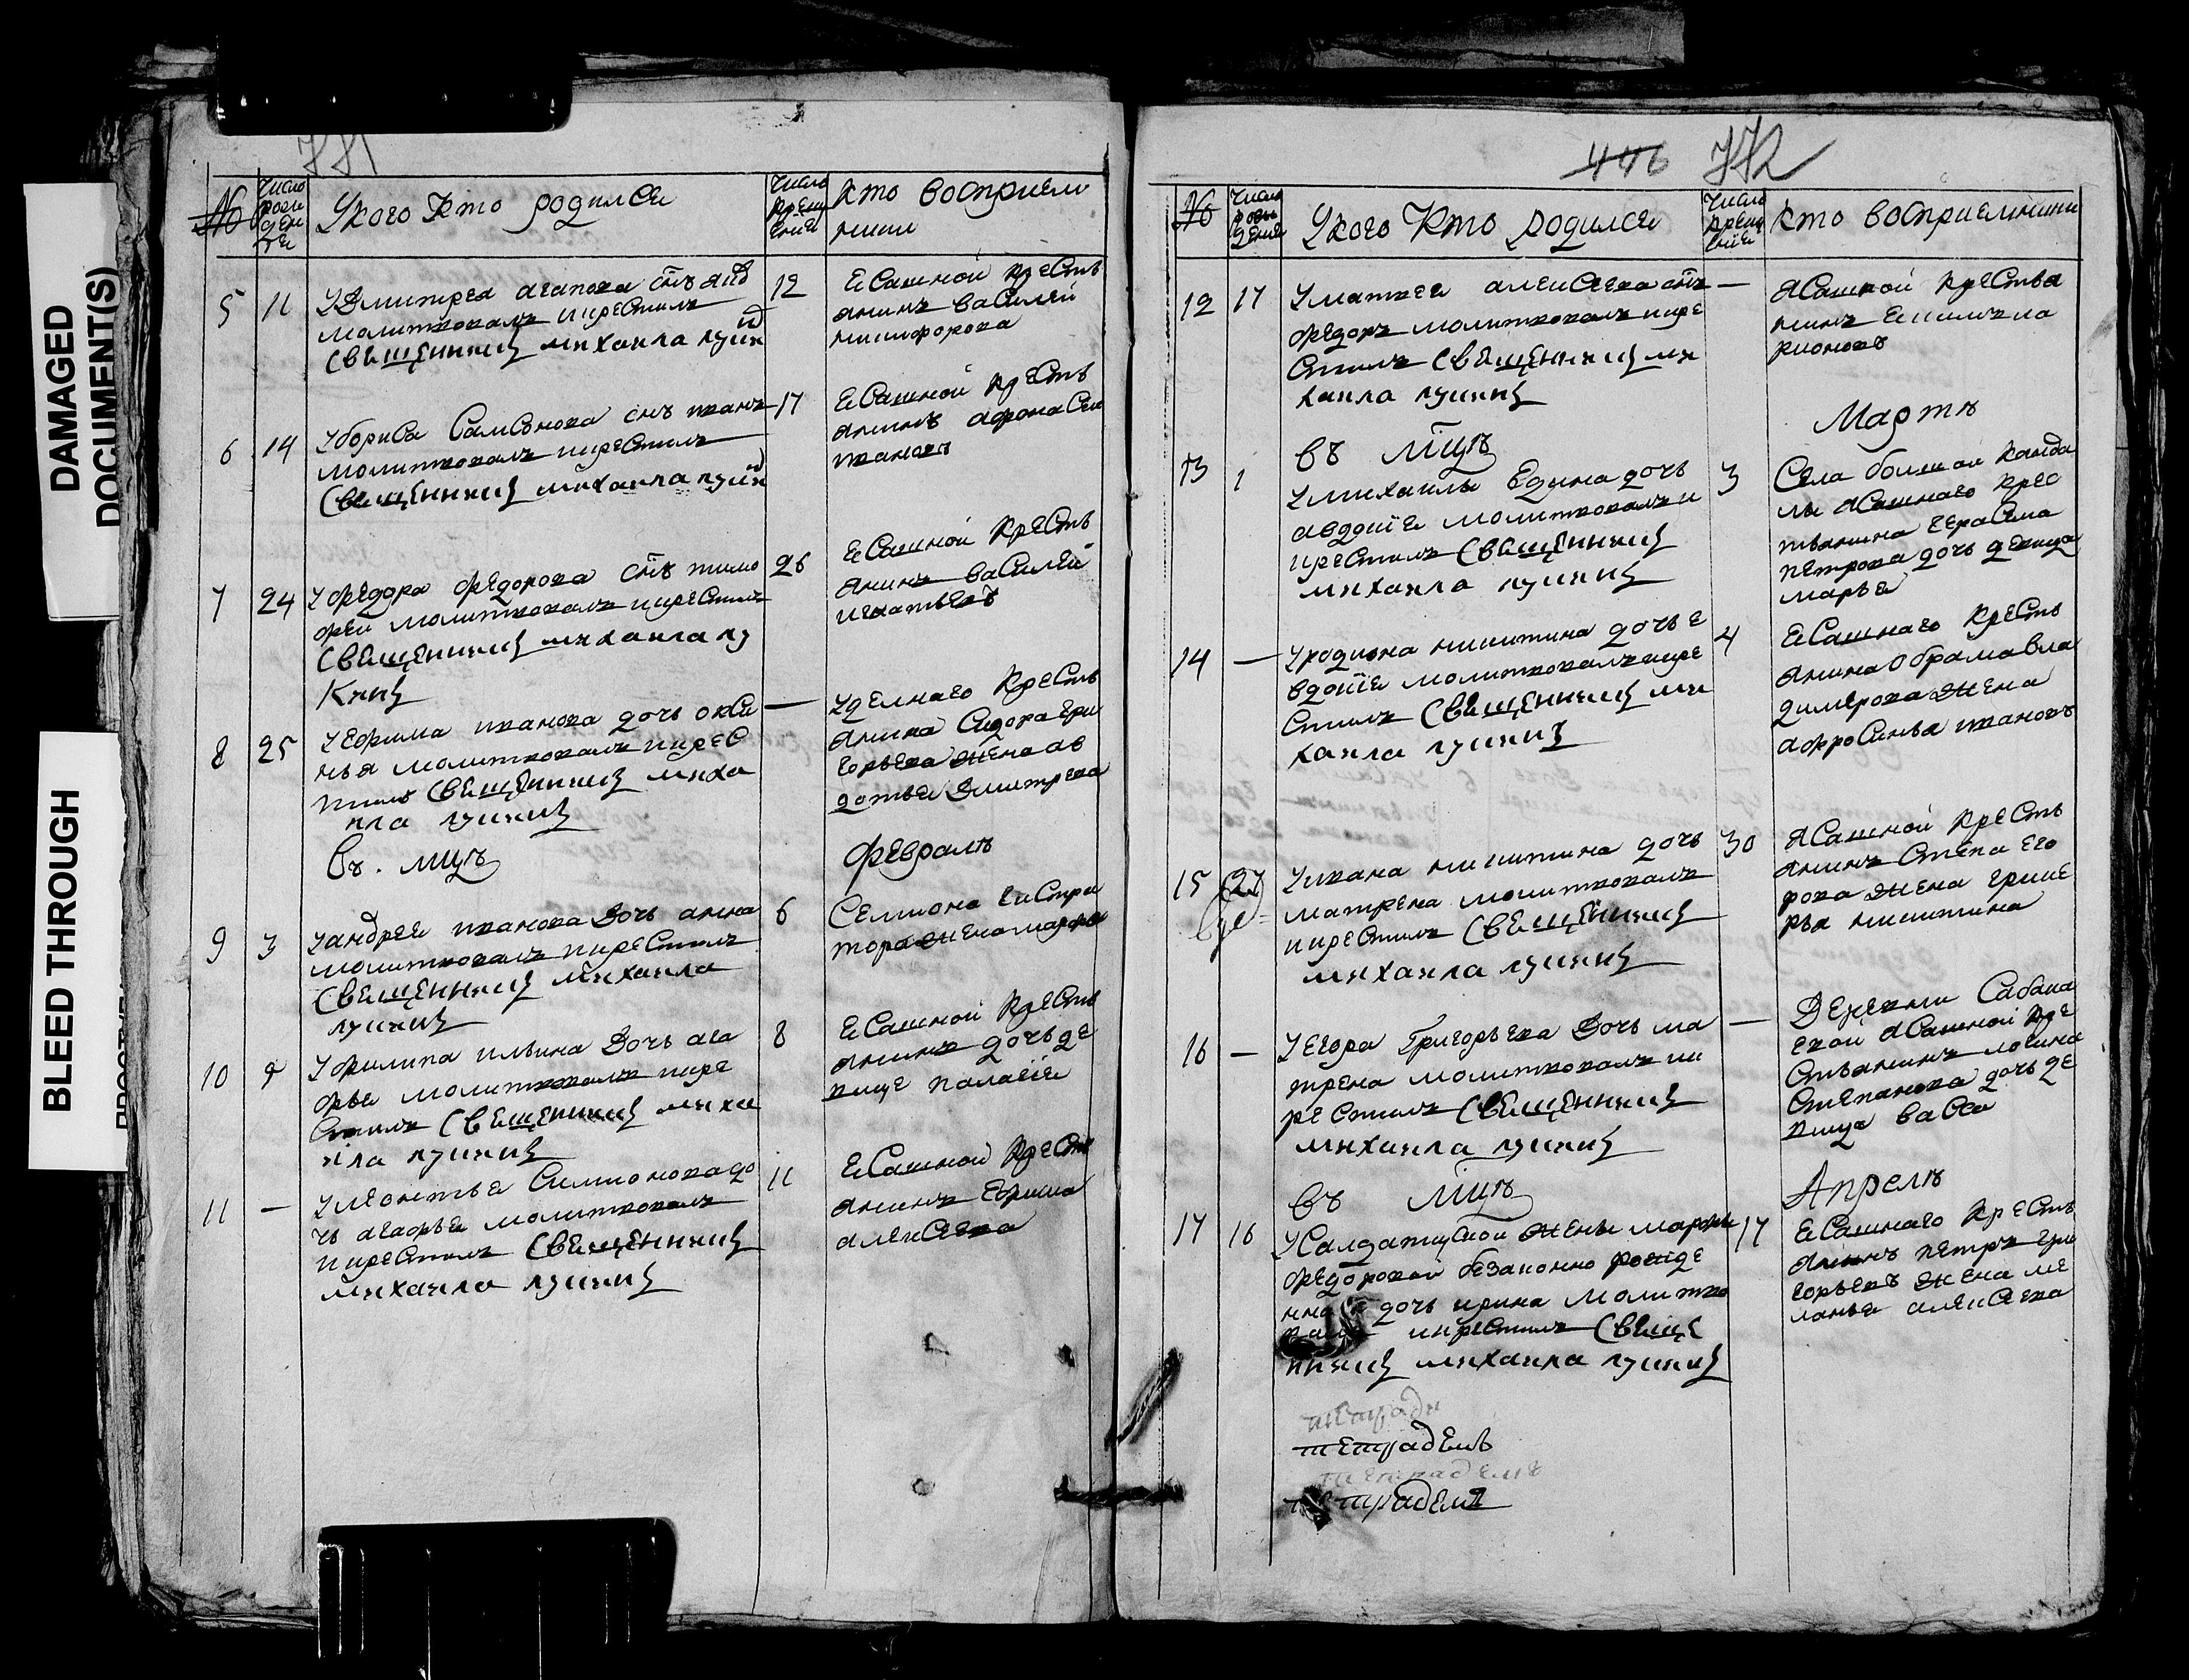 DAMAGED
DOCUMENT(S)
BLEED THROUGH
№
Число
рожд
дени
Укого Кто родился
Число
крещ
ения
Кто восприем
ники
5 11 У Дмитрея агапова
молитвовалъ икрестилъ
священникъ михаила лукинъ
12 Есашной кресть
янинъ василей
никифорова
6 14 Убориса Самсонова снъ иванъ
молитвовалъ икрестилъ
священникъ михаила лукин
17 Есашной кресть
янинъ афонасеи
ивановъ
7 24 Уфедора федорова снъ тимо
феи молитвовалъ икрестилъ
священникъ михаила лу
кинъ
26 Есашной кресть
янинъ василей
игнатьевъ
8 25 Уефима иванова дочь окси
нья молитвовалъ икрес
тилъ священникъ миха
ила лукинъ
— Уделнаго кресть
янина Сидора гри
горьева жена ав
дотья Дмитрева
въ мцъ
февраль
9 3 Уандрея иванова дочь анна
молитвовалъ икрестилъ
священникъ михаила
лукинъ
6 Семиона
жена марфа
10 Уфилипа ильина дочь ага
фья молитвовалъ икре
стилъ священникъ миха
ила лукинъ
8 Есашной кресть
янинъ дочь де
вице палагѣе
11 — Улеонтья Симионова до
чь агафья молитвовалъ
икрестилъ священникъ
михаила лукинъ
11 Есашной кресть
янинъ ефима
алексеева
446 772
№
Число
рожд
дения
Укого Кто родился
Число
крещ
ние
Кто восприемники
12 17 Уматвея алексеева снъ
федоръ молитвовалъ икре
стилъ священникъ ми
хаила лукинъ
— ясашной крестья
нинъ
въ мцъ
Мартъ
13 1 Умихаилы Едина дочь
авдотiе молитвовалъ и
крестилъ священникъ
михаила лукинъ
3 Села болшой канда
лы ясашнаго крес
тьянина герасима
петрова дочь девица
марья
14 — Уродивона никитина дочь е
вдотiе молитвовалъ икре
стилъ священникъ ми
хаила лукинъ
4 Есашнаго кресть
янина обрама вла
димерова жена
афросинья ивановъ
15 27 Уивана никитина дочь
матрена молитвовалъ
икрестилъ священникъ
михаила лукинъ
30 ясашной кресть
янинъ степа его
рова жена
никитина
16 — Уегора григорьева дочь ма
трена молитвовалъ ик
рестилъ священникъ
михаила лукинъ
— Деревни Сабака
евой ясашной кре
стьянинъ логина
степанова дочь де
вица васса
въ мцъ
Апрель
17 16 Усалдатцкой жены марфы
федоровой безаконно рожде
нна дочь ирина молитво
валъ икрестилъ священ
нникъ михаила лукинъ
17 Есашнаго кресть
янинъ петръ гри
горьевъ жена ме
ланья алексеева